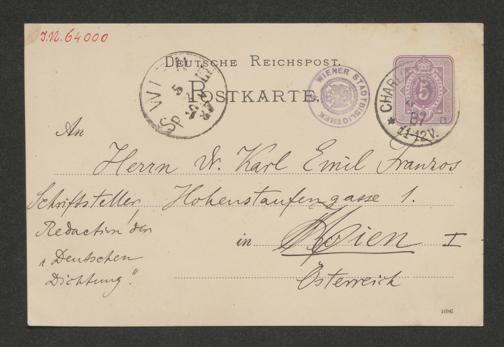 J.N. 64000
DEUTSCHE REICHSPOST.
POSTKARTE.
WIENER STADTBIBLIOTHEK
5
87
11-12V.
An
Herrn Dr. Karl Emil Franzos
Schriftsteller, Hohenstaufengasse 1.
Redaction der
in Wien I
„Deutschen
Dichtung".
Österreich